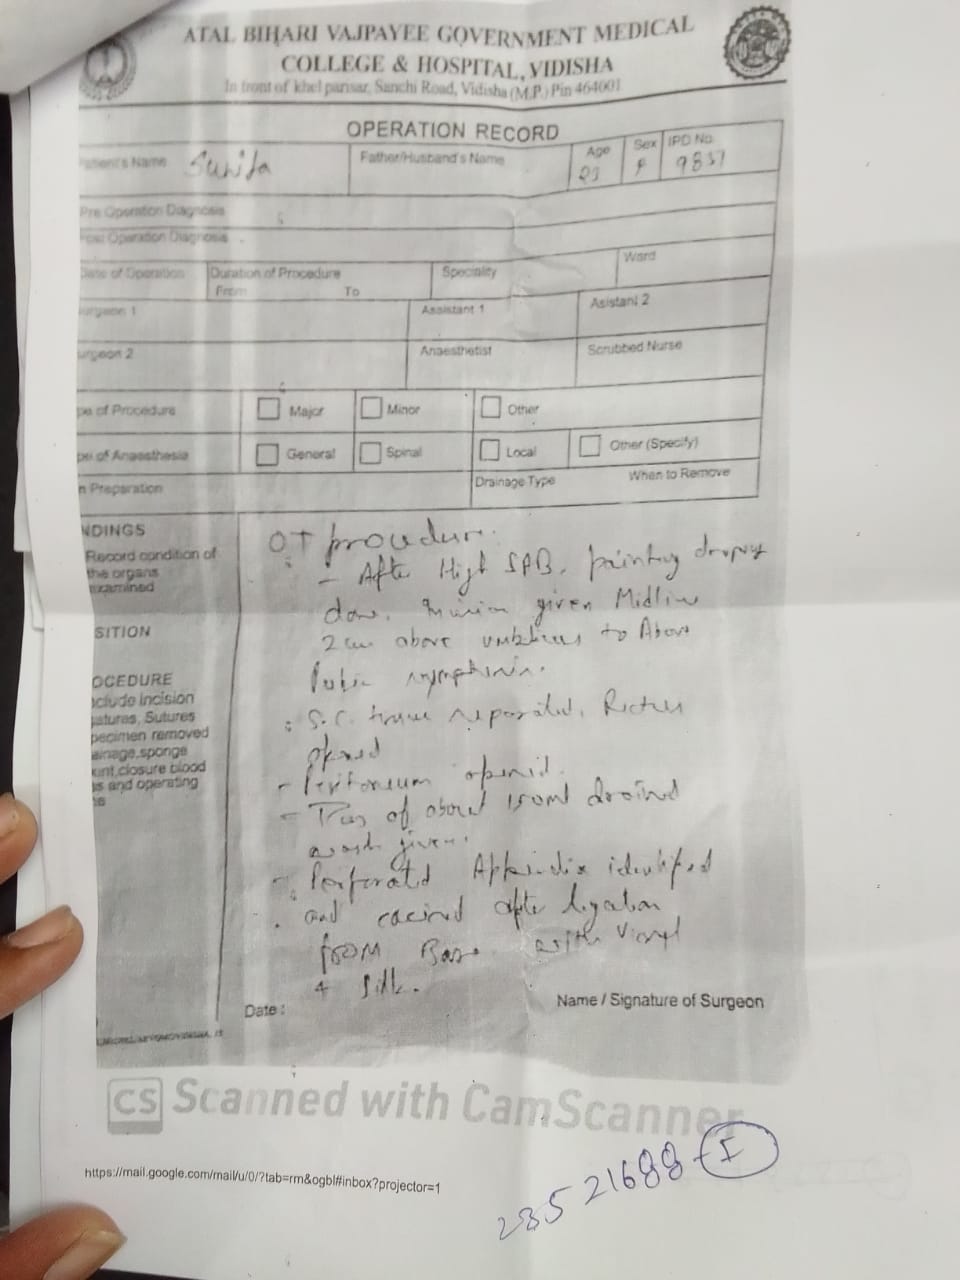 ATAL BIHARI VAJPAYEE GOVERNMENT MEDICAL
COLLEGE & HOSPITAL, VIDISHA
In front of khel parisar, Sanchi Road, Vidisha (M.P.) Pin 464001
OPERATION RECORD
Patient's Name Sunita Father/Husband's Name Age Sex F IPD No. 9837
Pre Operation Diagnosis
Post Operation Diagnosis
Date of Operation Duration of Procedure From To Speciality Ward
urgeon 1 Assistant 1 Asistant 2
urgeon 2 Anaesthetist Scrubbed Nurse
pe of Procedure Major Minor Other
pe of Anaesthesia General Spinal Local Other (Specify)
n Preparation Drainage Type When to Remove
NDINGS
Record condition of
the organs
examined
SITION
OCEDURE
nclude Incision
gatures, Sutures
pecimen removed
ainage, sponge
unt, closure blood
ss and operating
OT procedure:
- After High SAB, painting draping
done. Incision given Midline
2 cm above umbilicus to Above
Pubic symphisis.
- S.C. tissue separated, Rectus
opened
- Peritoneum opened.
- Pus of about 150ml drained
wash given.
- Perforated Appendix identified
and excised after ligation
from Base with Vicryl
+ Silk.
Date : Name / Signature of Surgeon
CS Scanned with CamScanner
https://mail.google.com/mail/u/0/?tab=rm&ogbl#inbox?projector=1
28521688-I